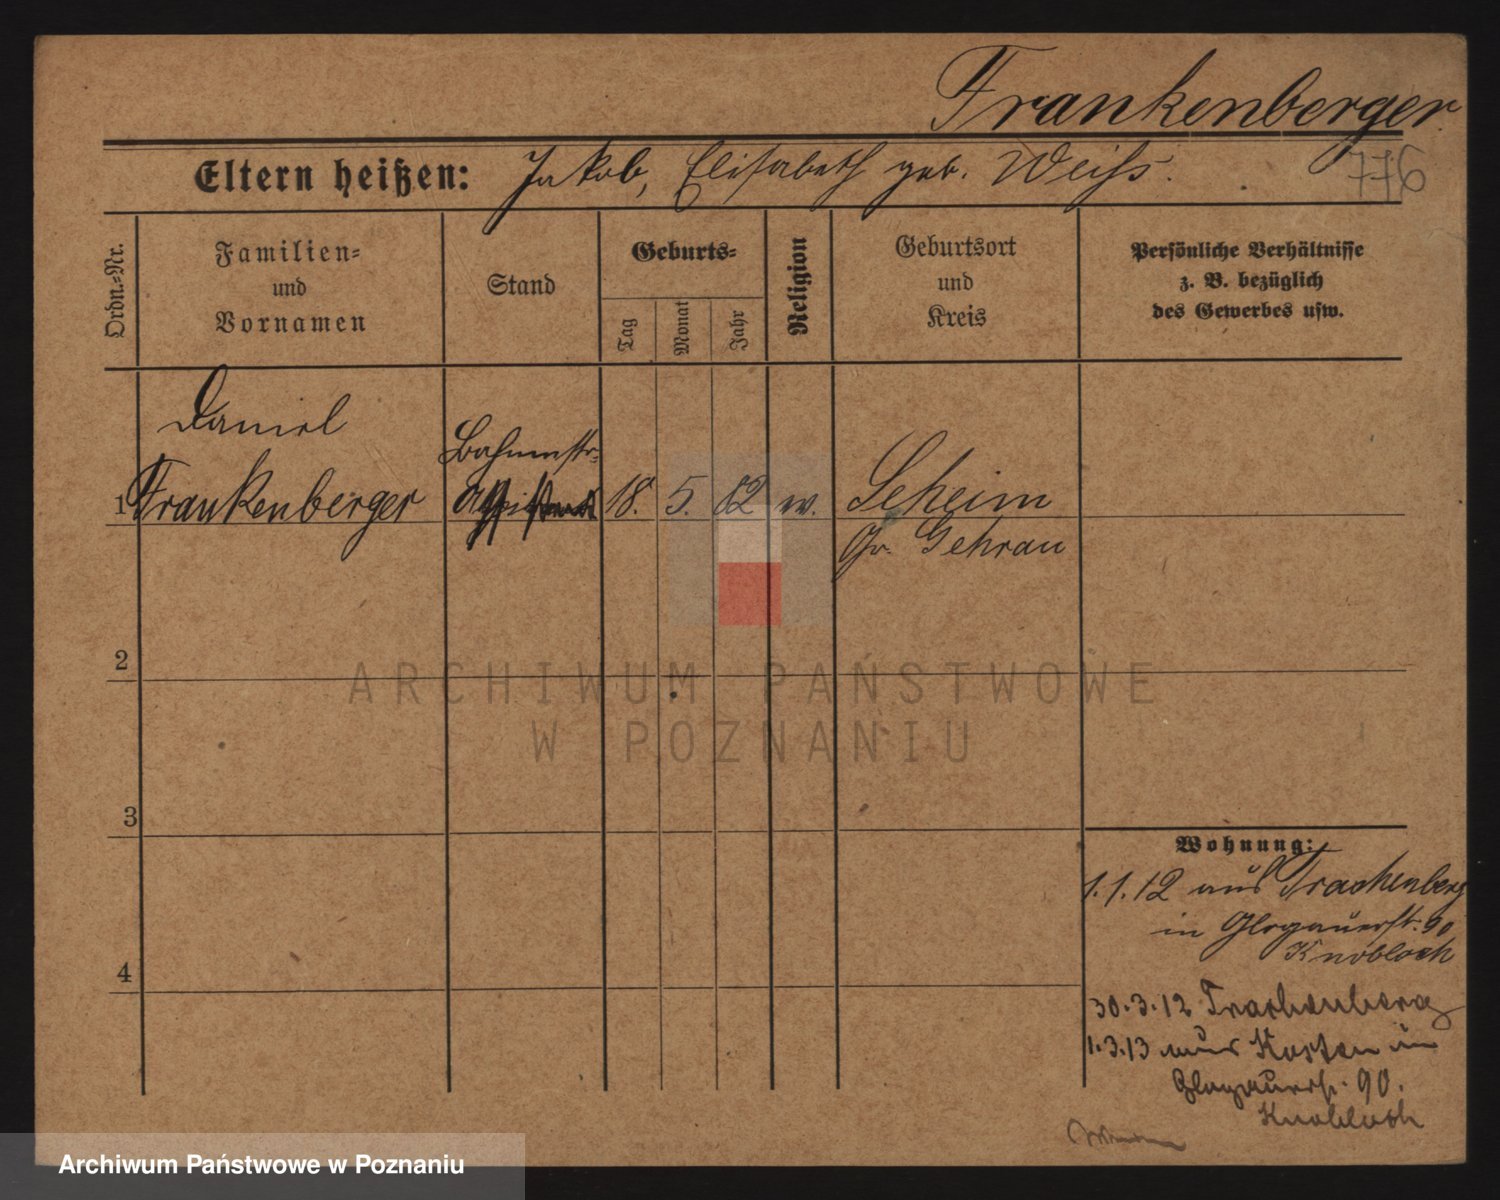 Frankenberger
Eltern heißen: Jakob, Elisabeth geb. Weiss.
776
Ordn.=Nr.
Familien=
und
Vornamen
Stand
Geburts=
Tag
Monat
Jahr
Religion
Geburtsort
und
Kreis
Persönliche Verhältnisse
z. B. bezüglich
des Gewerbes usw.
Daniel
Bahnmstr.
1 Frankenberger 18. 5. 82 w. Seheim
Gr. Gehrau
2
ARCHIWUM PAŃSTWOWE
W POZNANIU
3
Wohnung:
1.1.12 aus Trachenberg
in Glogauerstr. 90
Knobloch
4
30.3.12 Trachenberg
1.3.13 aus Kosten in
Glogauerstr. 90.
Knobloch
Archiwum Państwowe w Poznaniu